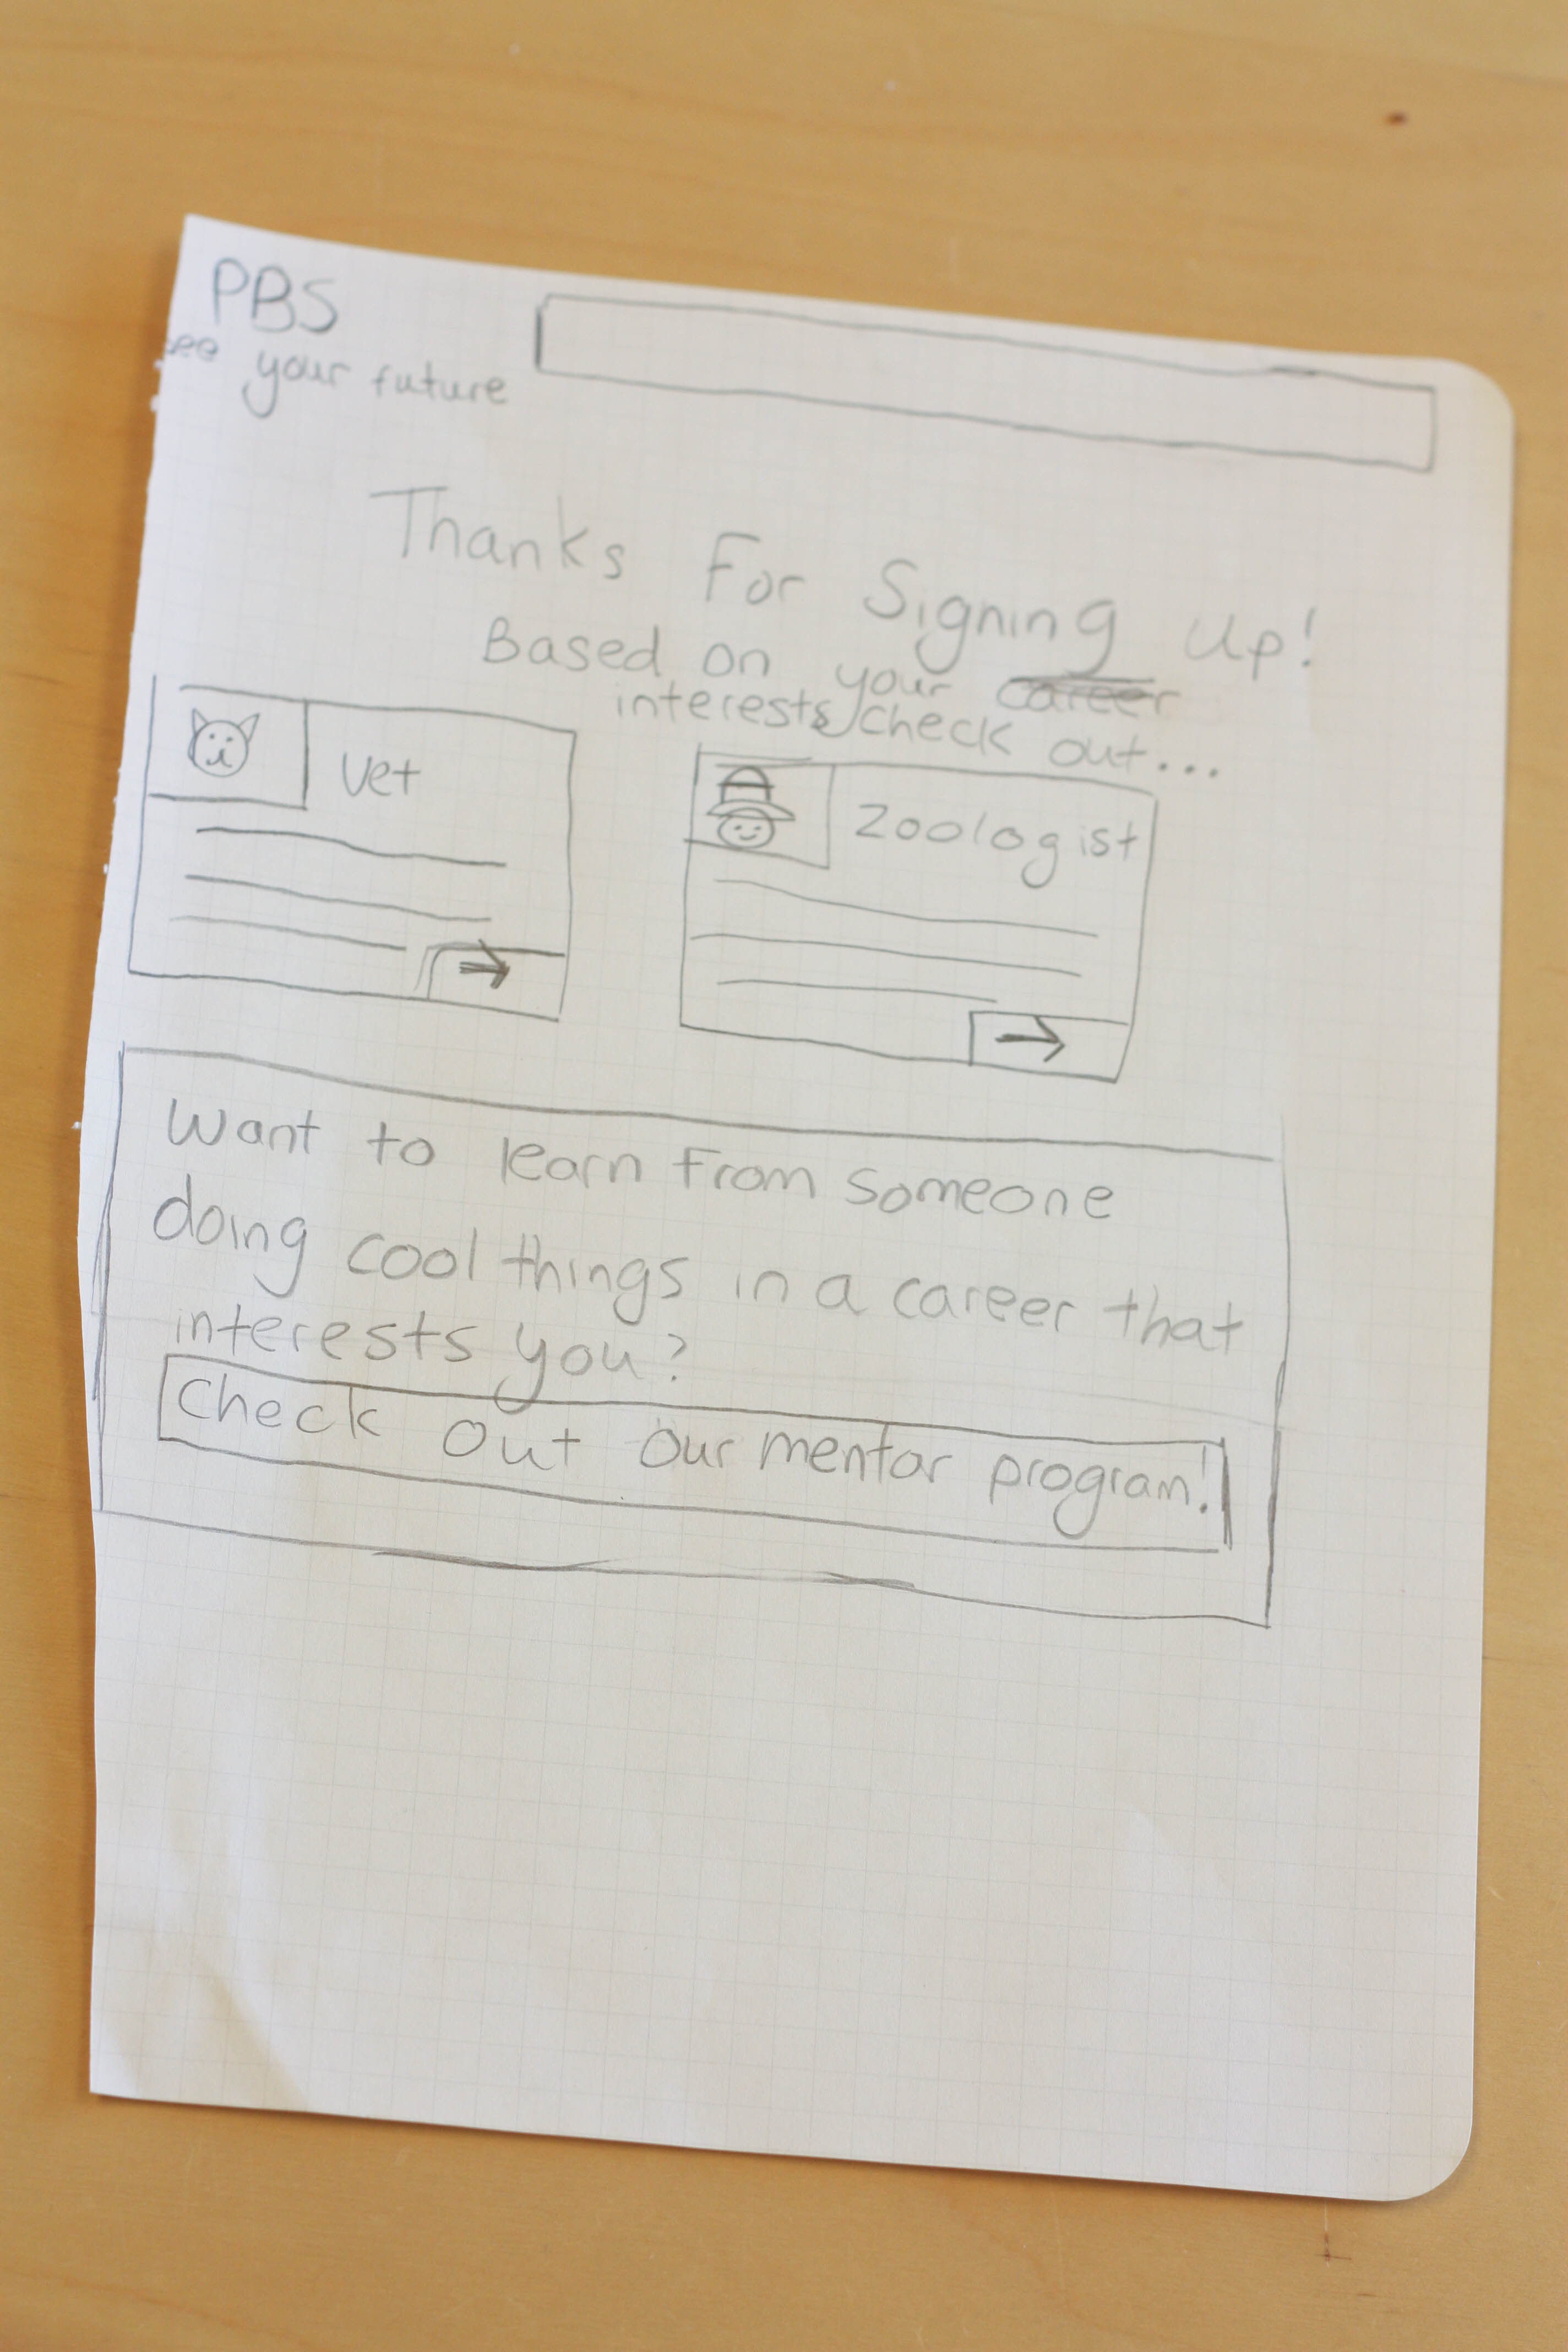 PBS
see your future
Thanks For Signing Up!
Based on your career
interests check out...
Vet
Zoologist
Want to learn from someone
doing cool things in a career that
interests you?
Check Out our mentor program!